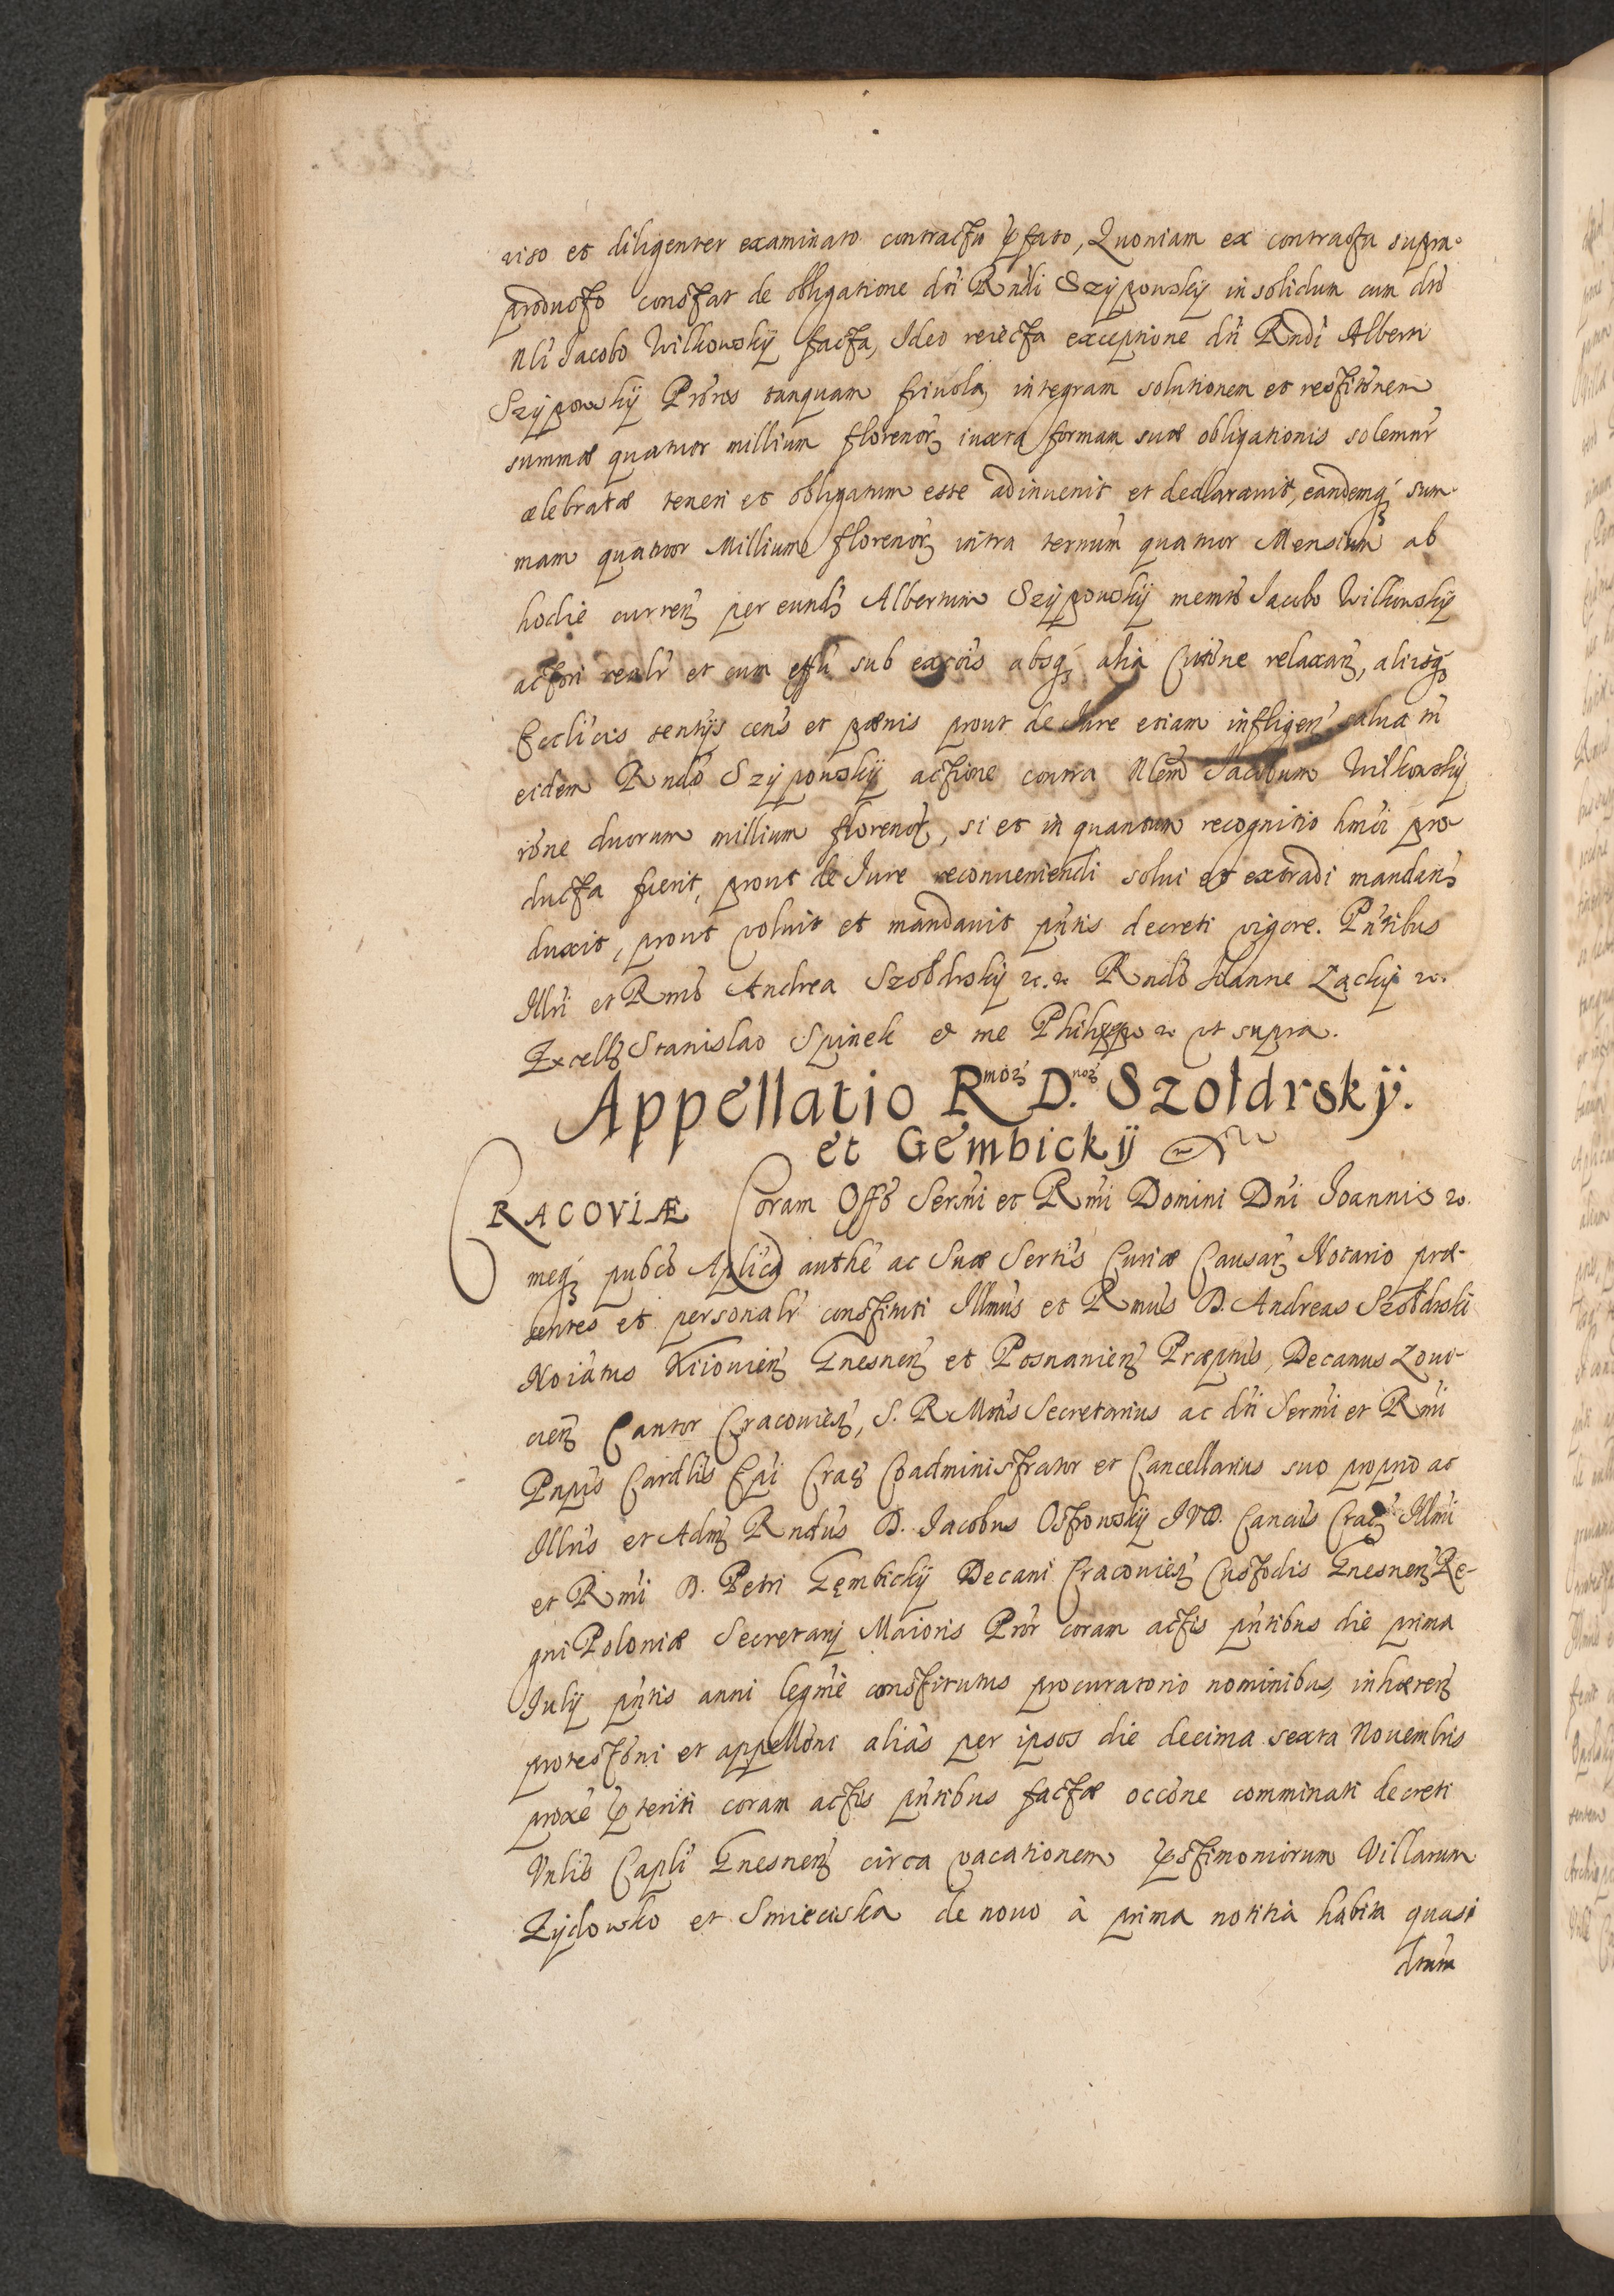 viso et diligenter examinato contractu p̄fato, Quoniam ex contractu supra
producto constat de obligatione dn̄i Rndi Szÿpowskÿ in solidum cum dn̄o
Nli Jacobo Wilkowskÿ facta, Ideo reiecta exceptione dn̄i Rndi Alberti
Szÿpowskÿ tanquam friuola, integram solutionem et restitōnem
summæ quatuor millium florenoꝝ iuxta formam suæ obligationis solemnr̄
celebratæ teneri et obligatum esse adinuenit et declarauit, eandemq́ʒ sum-
mam quatuor Millium florenoꝝ intra ternum quatuor Mensium ab
hodie curreñ per eund Albertum Szÿpowskÿ memto Jacobo Wilkowskÿ
actori realr̄ et cum effū sub excōis absq́ʒ alia Cit̄ōne relaxañ, alijsq́ʒ
Eccl̄icis sentijs cens̄ et pœnis prout de Iure etiam infligeñ salua tn̄
eidem Rndo Szÿpowskÿ actione contra Nlem Jacobum Wilkowskÿ
rōne duorum millium florenoꝝ, si et in quantum recognitio hmōi pro
ducta fuerit, prout de Iure reconueniendi solui et extradi mandan̄
duxit, prout voluit et mandauit pn̄tis decreti vigore. Pn̄tibus
Illr̄i et Rmō Andrea Szołdrskÿ ꝛc. ꝛc Rndō Ioanne Łąckÿ ꝛc.
Excell̄ Stanislao Spinek & me Philippo ꝛc vt supra.
Appellatio Rmoꝝ D.noꝝ Szołdrskÿ.
et Gembickÿ
CRACOVIÆ Coram Offō Serm̄i et Rm̄i Domini Dn̄i Ioannis ꝛc.
meq́ʒ pub̄co Ap̄lica authē ac Suæ Sertīs Curiæ Causaꝝ Notario præ-
sentes et personalr̄ constituti Illmūs et Rmūs D. Andreas Szołdrski
Noiātus Kiiouieñ Gnesneñ et Posnanieñ Præptūs, Decanus Łoui-
cieñ Cantor Cracouieñ, S. R Mtīs Secretarius ac dn̄i Serm̄i et Rm̄i
Pnpis Cardlis Ep̄i Craē Coadministrator et Cancellarius suo proprio ac
Illrīs et Adm̄ Rndūs D. Jacobus Ostrowskÿ IVD. Cancūs Craē Illmi
et Rm̄i D. Petri Gęmbickÿ Decani Cracouieñ Custodis Gnesneñ Re-
gni Poloniæ Secretarij Maioris Prōr coram actis pn̄tibus die prima
Iulij pn̄tis anni legme constitutus procuratorio nominibus, inhæreñ
protestōni et appellōni alias per ipsos die decima sexta Nouembris
proxe p̄teriti coram actis pn̄tibus factæ occōne comminati decreti
Vnlīs Capli Gnesneñ circa vacationem p̄stimoniorum Villarum
Zÿdowko et Smieciska de nouo à prima notitia habita quasi